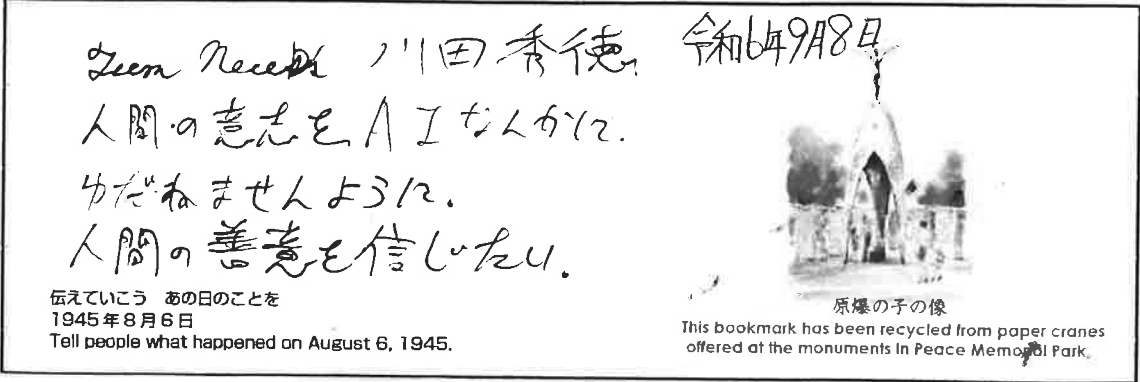 川田秀徳 令和6年9月8日
人間の意志をAIなんかに.
ゆだねませんように.
人間の善意を信じたい.
伝えていこう あの日のことを
1945年8月6日
Tell people what happened on August 6, 1945.
原爆の子の像
This bookmark has been recycled from paper cranes
offered at the monuments in Peace Memorial Park.